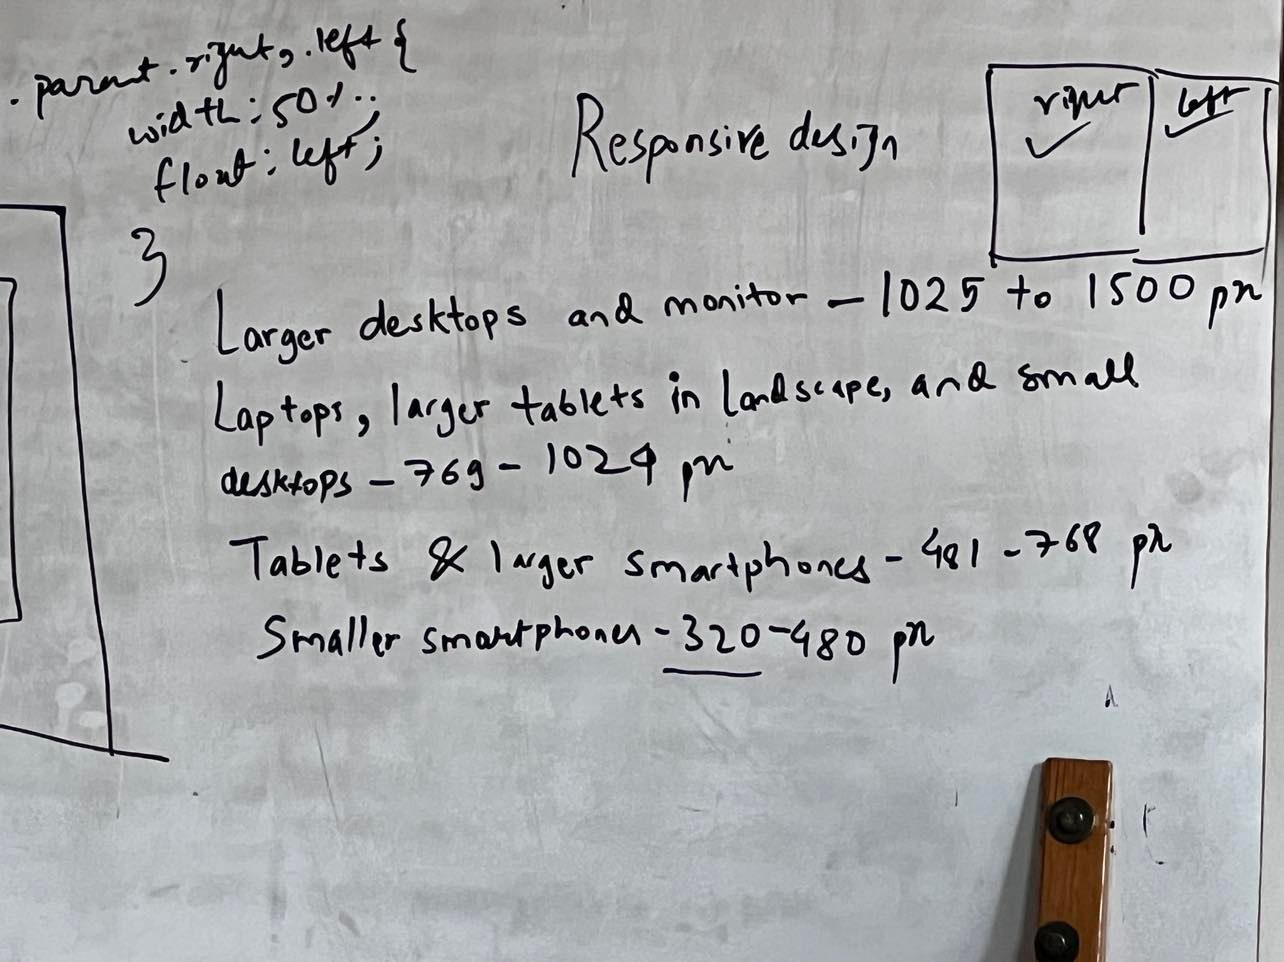 .parent.right, .left {
width: 50%;
float: left;
}
Responsive design
right left
Larger desktops and monitor - 1025 to 1500 px
Laptops, larger tablets in landscape, and small
desktops - 769 - 1024 px
Tablets & larger smartphones - 481 - 768 px
Smaller smartphones - 320 - 480 px